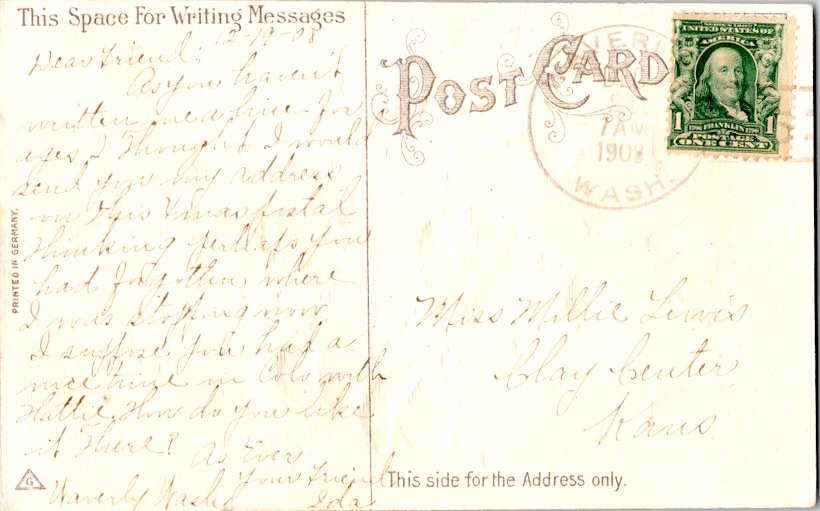 This Space For Writing Messages
12-19-08
Dear Friend:
As you haven't
written me a line for
ages I Thought I would
send you my address
on This Xmas postal
Thinking perhaps you
had forgotten where
I was stopping now
I suppose you had a
nice time in Colo with
Hattie. How do you like
it There?
As Ever
Your Friend
Waverly Wash
Ida
PRINTED IN GERMANY.
G
"POST CARD
7 AM
1908
WASH.
SERIES 1902
UNITED STATES OF
AMERICA
1 1706 FRANKLIN 1790 1
POSTAGE
ONE CENT
Miss Millie Lewis
Clay Center
Kans
This side for the Address only.